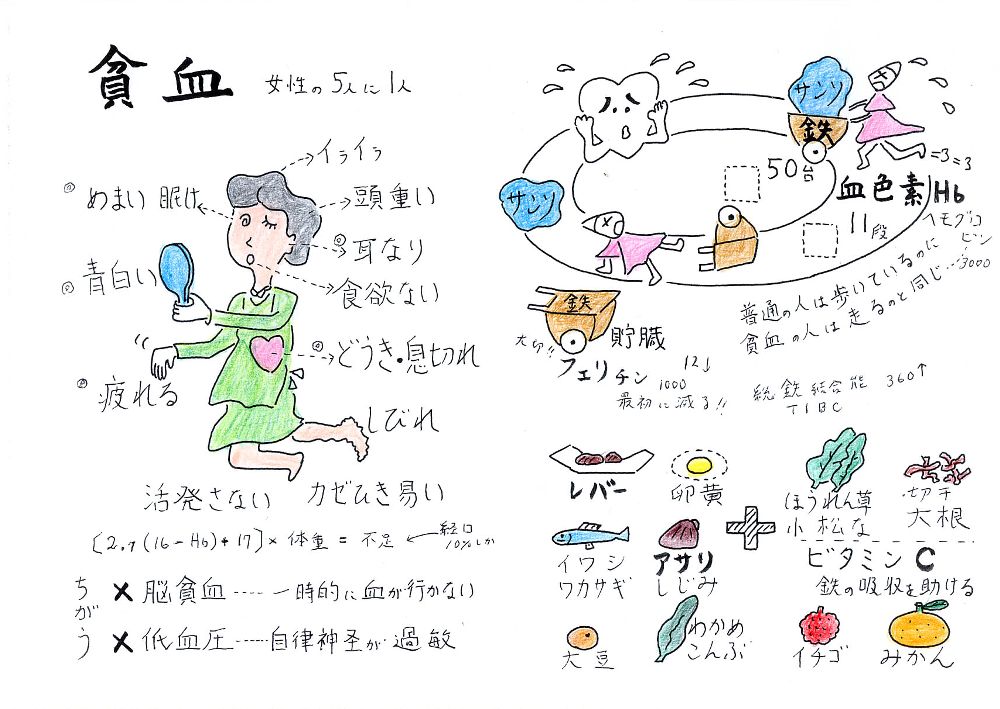 貧血
女性の5人に1人
イライラ
めまい 眠け
頭重い
耳なり
青白い
食欲ない
どうき・息切れ
疲れる
しびれ
活発さない カゼひき易い
[2.7(16-Hb)+17]×体重=不足 ← 経口
10%しか
ちがう
×脳貧血----一時的に血が行かない
×低血圧----自律神圣が過敏
サンソ
鉄
=3=3
50台
血色素Hb
11段
ヘモグロビン
サンソ
普通の人は歩いているのに
貧血の人は走るのと同じ…3000
鉄
大切!!
貯臓
フェリチン
12↓
1000
最初に減る!!
総鉄結合能 360↑
TIBC
レバー
卵黄
ほうれん草
小松な
切干
大根
イワシ
ワカサギ
アサリ
しじみ
ビタミンC
鉄の吸収を助ける
大豆
わかめ
こんぶ
イチゴ
みかん